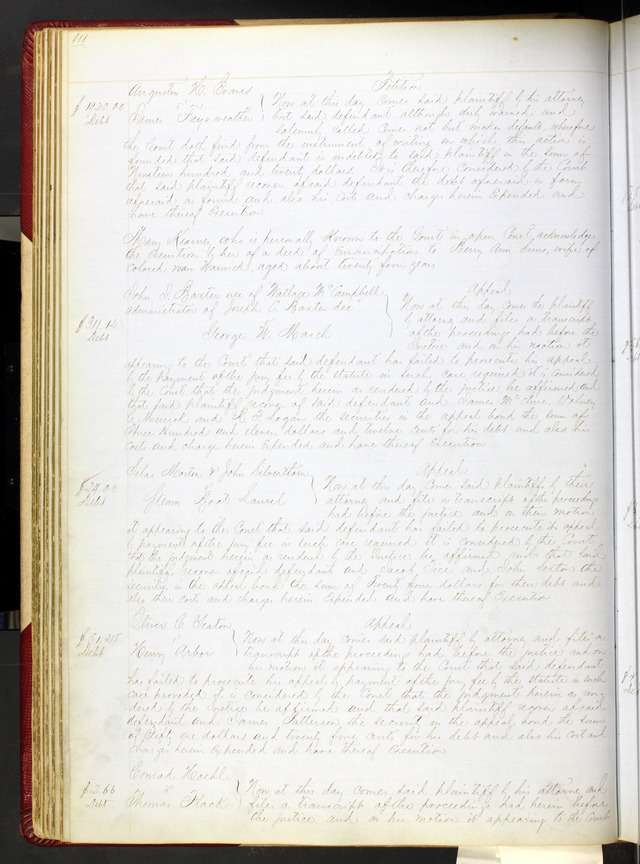 111
Augustin H. Evans Petition
$1920.00 Debt
James Fayrweather
Now at this day comes said plaintiff by his attorney
but said defendant although duly warned and
solemnly called comes not but makes default wherefore
the Court doth find from the instrument of writing on which this action is
founded that said defendant is indebted to said plaintiff in the sum of
Nineteen hundred and twenty dollars It is therefore considered by the Court
that said plaintiff recover of said defendant the debt aforesaid in form
aforesaid so found and also his costs and charges herein expended and
have thereof Execution
Mary Kearney who is personally known to the Court in open Court acknowledges
the Execution by her of a deed of Emancipation to Berry Ann wife of
Colored man aged about twenty four years
John J. Baxter use of Wallace McCampbell Appeal
administrator of Joseph C. Baxter decd
$311.12 Debt
George W. March
Now at this day comes the plaintiff
by attorney and files a transcript
of the proceedings had before the
Justice and on his motion it
appearing to the Court that said defendant has failed to prosecute his appeal
by the payment of the jury fee by the statute in such case required it is considered
by the Court that the judgment herein as rendered by the justice be affirmed and
that said plaintiff recover of said defendant and James
and Logan the securities in the appeal bond the sum of
three hundred and eleven dollars and twelve cents for his debt and also his
costs and charges herein expended and have thereof Execution
Silas Morton & John Silverthorn Appeal
Debt
Steam Boat Laurel
Now at this day comes said plaintiff by their
attorney and files a transcript of the proceedings
had before the justice and on their motion
it appearing to the Court that said defendant has failed to prosecute its appeal
by payment of the jury fee in such case required it is considered by the Court
that the judgment herein as rendered by the Justice be affirmed and that said
plaintiffs recover of said defendant and Jacob and John Sexton the
securities in the appeal bond the sum of Twenty four dollars for their debt and
also their costs and charges herein Expended and have thereof Execution
Oliver C. Seaton Appeal
$51.25 Debt
Henry Arbor
Now at this day comes said plaintiff by attorney and files a
transcript of the proceedings had before the justice and on
his motion it appearing to the Court that said defendant
has failed to prosecute his appeal by payment of the jury fee by the statute in such
case provided it is considered by the Court that the judgment herein as ren-
dered by the Justice be affirmed and that said plaintiff recover of said
defendant and James Patterson the security in the appeal bond the sum
of fifty one dollars and twenty five cents for his debt and also his cost and
charges herein expended and have thereof Execution
Conrad Koehl
$2.66 Debt
vs
Thomas Flack
Now at this day comes said plaintiff by his attorney and
files a transcript of the proceedings had herein before
the justice and on his motion it appearing to the Court